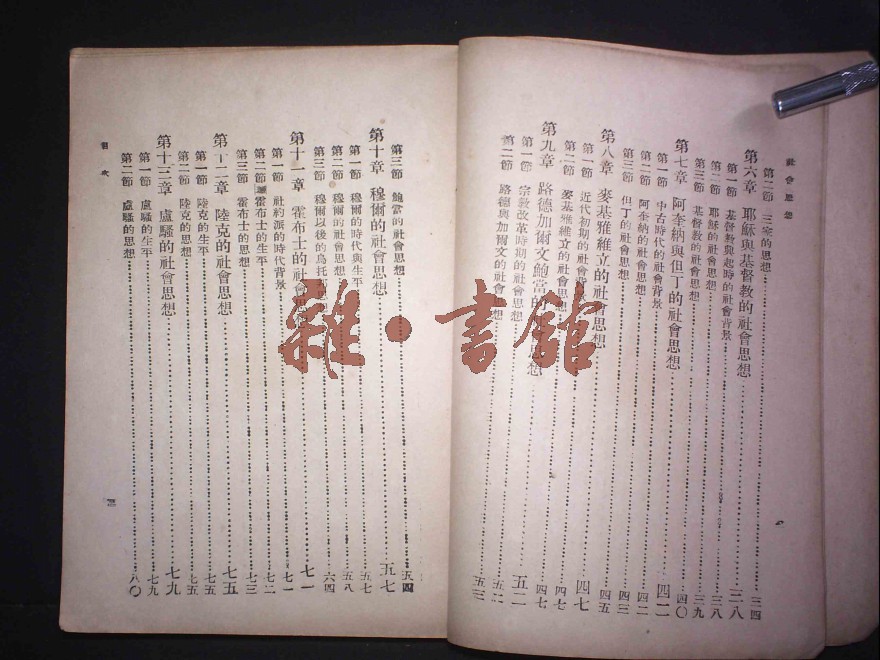 社會思想
第二節 三宋的思想 三四
第六章 耶穌與基督教的社會思想 三八
第一節 基督教興起時的社會背景 三八
第二節 耶穌的社會思想 三九
第三節 基督教的社會思想 四〇
第七章 阿奎納與但丁的社會思想 四二
第一節 中古時代的社會背景 四二
第二節 阿奎納的社會思想 四三
第三節 但丁的社會思想 四五
第八章 麥基雅維立的社會思想 四七
第一節 近代初期的社會背景 四七
第二節 麥基雅維立的社會思想 四七
第九章 路德加爾文鮑當的社會思想 五二
第一節 宗教改革時期的社會思想 五二
第二節 路德與加爾文的社會思想 五三
第三節 鮑當的社會思想 五四
第十章 穆爾的社會思想 五七
第一節 穆爾的時代與生平 五七
第二節 穆爾的社會思想 五八
第三節 穆爾以後的烏托 六四
第十一章 霍布士的社會思想 七一
第一節 社約派的時代背景 七一
第二節 霍布士的生平 七二
第三節 霍布士的思想 七三
第十二章 陸克的社會思想 七五
第一節 陸克的生平 七五
第二節 陸克的思想 七五
第十三章 盧騷的社會思想 七九
第一節 盧騷的生平 七九
第二節 盧騷的思想 八〇
目次
雜·書館